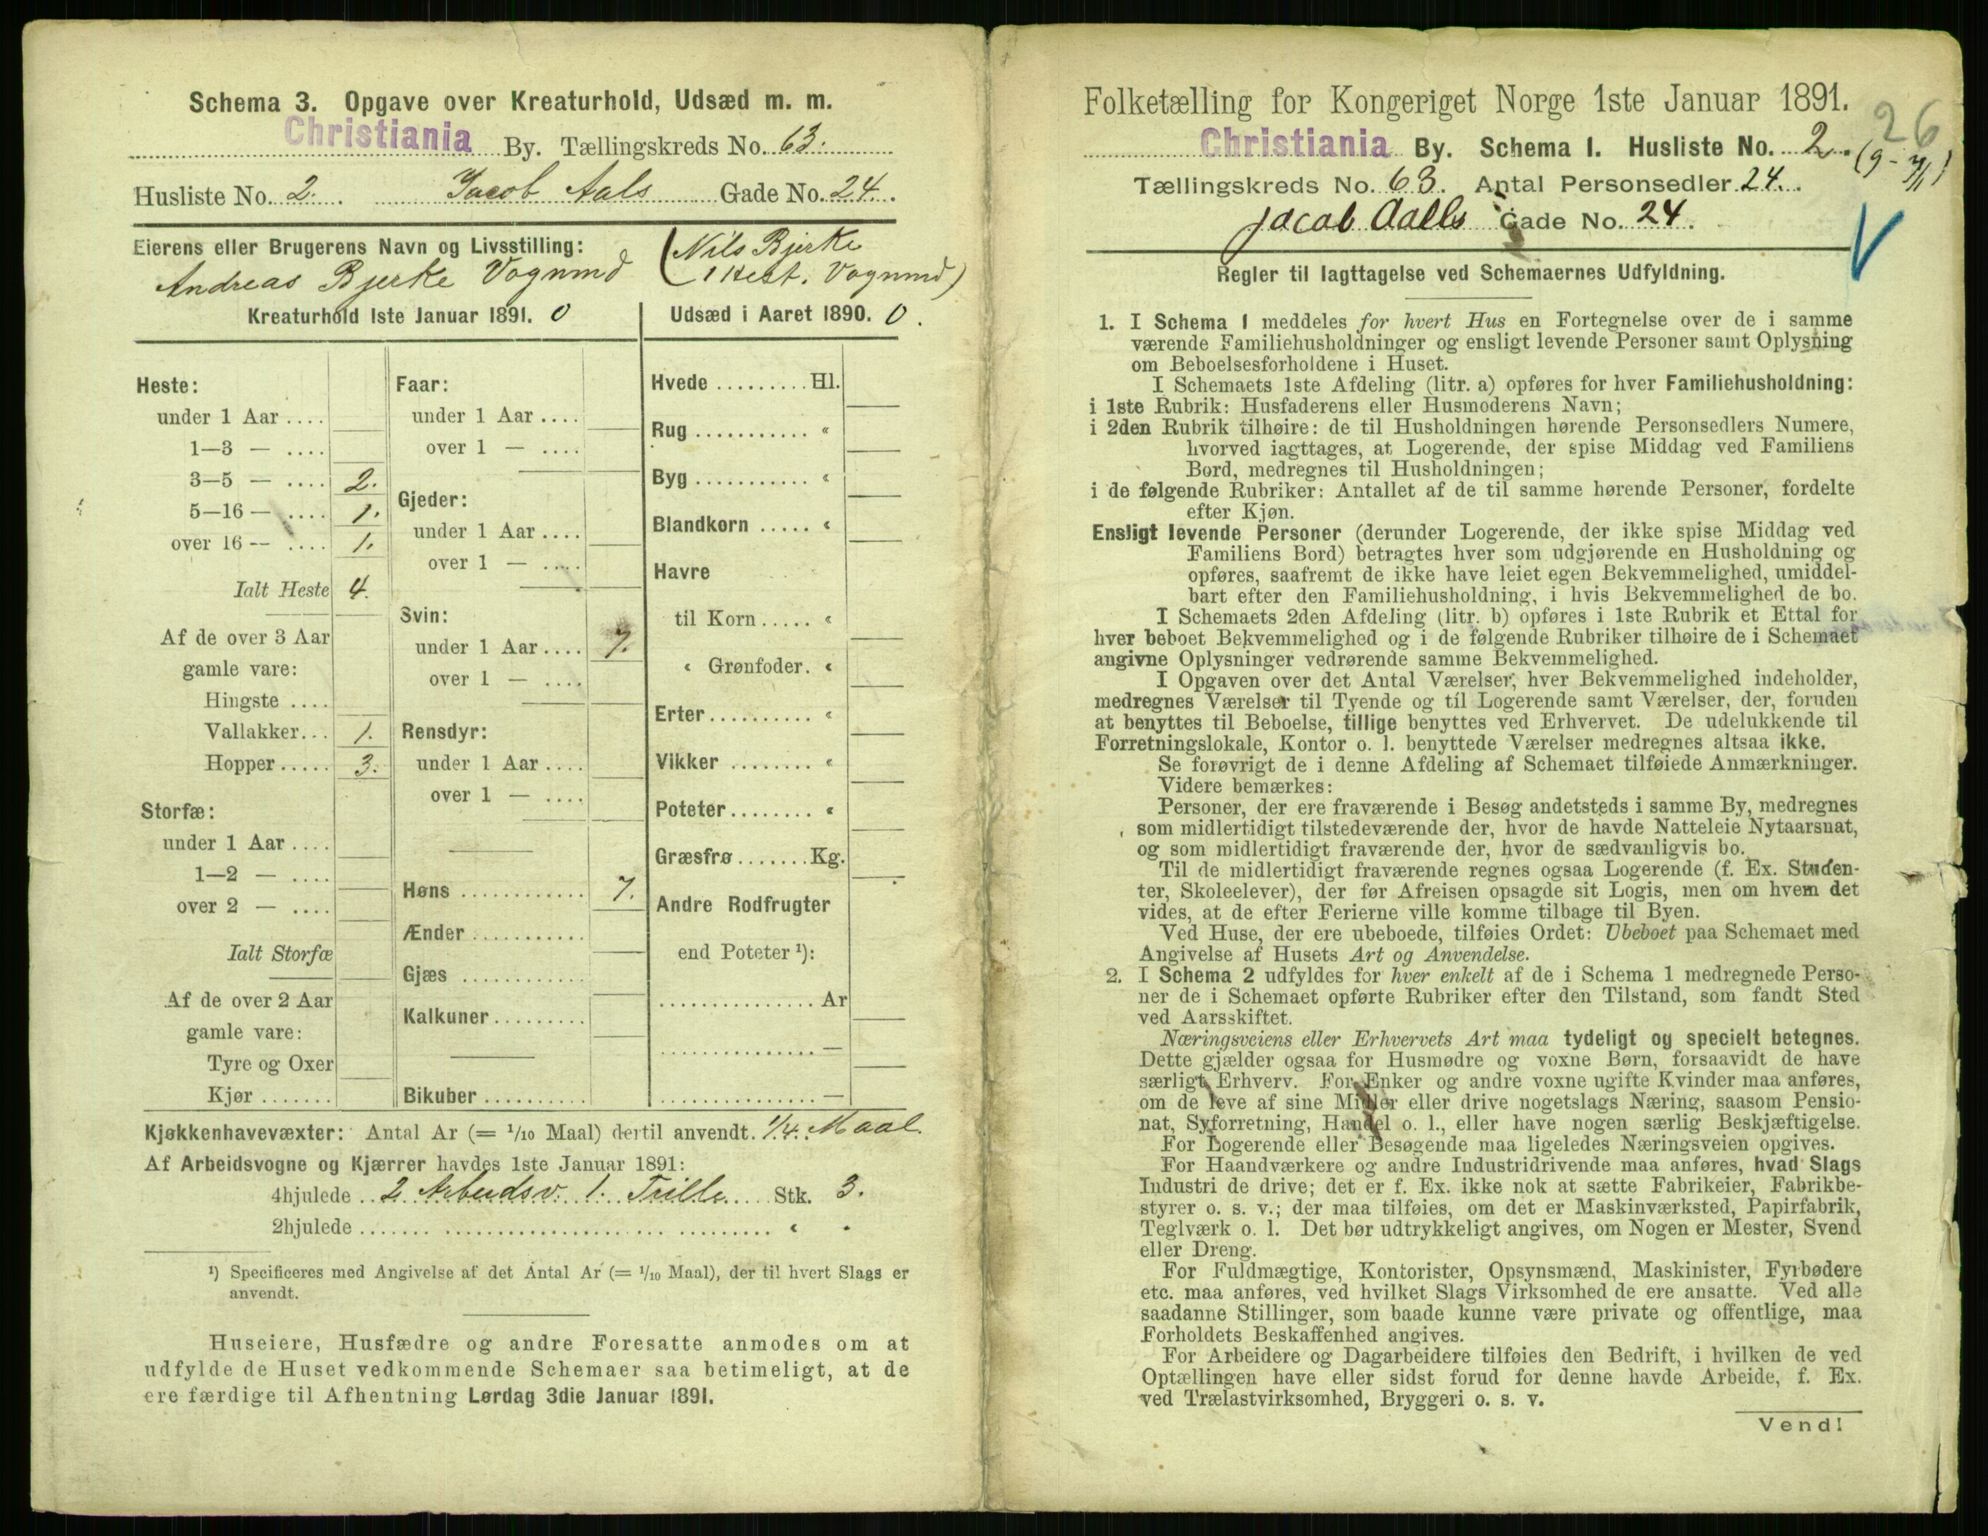 Schema 3. Opgave over Kreaturhold, Udsæd m. m.
Christiania By. Tællingskreds No. 63.
Husliste No. 2. Jacob Aals Gade No. 24.
Eierens eller Brugerens Navn og Livsstilling: (Nils Bjerke
Andreas Bjerke Vognmd 1 Hest. Vognmd)
Kreaturhold 1ste Januar 1891. 0
Udsæd i Aaret 1890. 0.
Heste:
under 1 Aar ....
1—3 — ....
3—5 — .... 2.
5—16 — .... 1.
over 16 — .... 1.
Ialt Heste 4.
Af de over 3 Aar
gamle vare:
Hingste ....
Vallakker... 1.
Hopper ..... 3.
Storfæ:
under 1 Aar ....
1—2 — ....
over 2 — ....
Ialt Storfæ
Af de over 2 Aar
gamle vare:
Tyre og Oxer
Kjør ........
Faar:
under 1 Aar ....
over 1 — ....
Gjeder:
under 1 Aar ....
over 1 — ....
Svin:
under 1 Aar .... 7.
over 1 — ....
Rensdyr:
under 1 Aar ....
over 1 — ....
Høns ............ 7.
Ænder ...........
Gjæs ............
Kalkuner.........
Bikuber ..........
Hvede ......... Hl.
Rug ........... "
Byg ........... "
Blandkorn ..... "
Havre
til Korn ..... "
" Grønfoder. "
Erter.......... "
Vikker ........ "
Poteter........ "
Græsfrø ....... Kg.
Andre Rodfrugter
end Poteter ¹):
............... Ar
............... —
............... —
Kjøkkenhavevæxter: Antal Ar (= 1/10 Maal) dertil anvendt. 1/4. Maal.
Af Arbeidsvogne og Kjærrer havdes 1ste Januar 1891:
4hjulede .. 2 Arbeidsv. 1. Trille Stk. 3.
2hjulede .............................. "
¹) Specificeres med Angivelse af det Antal Ar (= 1/10 Maal), der til hvert Slags er
anvendt.
Huseiere, Husfædre og andre Foresatte anmodes om at
udfylde de Huset vedkommende Schemaer saa betimeligt, at de
ere færdige til Afhentning Lørdag 3die Januar 1891.
Folketælling for Kongeriget Norge 1ste Januar 1891.
26
Christiania By. Schema 1. Husliste No. 2.
Tællingskreds No. 63. Antal Personsedler 24.
Jacob Aalls Gade No. 24
Regler til Iagttagelse ved Schemaernes Udfyldning.
1. I Schema 1 meddeles for hvert Hus en Fortegnelse over de i samme
værende Familiehusholdninger og ensligt levende Personer samt Oplysning
om Beboelsesforholdene i Huset.
I Schemaets 1ste Afdeling (litr. a) opføres for hver Familiehusholdning:
i 1ste Rubrik: Husfaderens eller Husmoderens Navn;
i 2den Rubrik tilhøire: de til Husholdningen hørende Personsedlers Numere,
hvorved iagttages, at Logerende, der spise Middag ved Familiens
Bord, medregnes til Husholdningen;
i de følgende Rubriker: Antallet af de til samme hørende Personer, fordelte
efter Kjøn.
Ensligt levende Personer (derunder Logerende, der ikke spise Middag ved
Familiens Bord) betragtes hver som udgjørende en Husholdning og
opføres, saafremt de ikke have leiet egen Bekvemmelighed, umiddel-
bart efter den Familiehusholdning, i hvis Bekvemmelighed de bo.
I Schemaets 2den Afdeling (litr. b) opføres i 1ste Rubrik et Ettal for
hver beboet Bekvemmelighed og i de følgende Rubriker tilhøire de i Schemaet
angivne Oplysninger vedrørende samme Bekvemmelighed.
I Opgaven over det Antal Værelser, hver Bekvemmelighed indeholder,
medregnes Værelser til Tyende og til Logerende samt Værelser, der, foruden
at benyttes til Beboelse, tillige benyttes ved Erhvervet. De udelukkende til
Forretningslokale, Kontor o. l. benyttede Værelser medregnes altsaa ikke.
Se forøvrigt de i denne Afdeling af Schemaet tilføiede Anmærkninger.
Videre bemærkes:
Personer, der ere fraværende i Besøg andetsteds i samme By, medregnes
som midlertidigt tilstedeværende der, hvor de havde Natteleie Nytaarsnat,
og som midlertidigt fraværende der, hvor de sædvanligvis bo.
Til de midlertidigt fraværende regnes ogsaa Logerende (f. Ex. Studen-
ter, Skoleelever), der før Afreisen opsagde sit Logis, men om hvem det
vides, at de efter Ferierne ville komme tilbage til Byen.
Ved Huse, der ere ubeboede, tilføies Ordet: Ubeboet paa Schemaet med
Angivelse af Husets Art og Anvendelse.
2. I Schema 2 udfyldes for hver enkelt af de i Schema 1 medregnede Perso-
ner de i Schemaet opførte Rubriker efter den Tilstand, som fandt Sted
ved Aarsskiftet.
Næringsveiens eller Erhvervets Art maa tydeligt og specielt betegnes.
Dette gjælder ogsaa for Husmødre og voxne Børn, forsaavidt de have
særligt Erhverv. For Enker og andre voxne ugifte Kvinder maa anføres,
om de leve af sine Midler eller drive nogetslags Næring, saasom Pensio-
nat, Syforretning, Handel o. l., eller have nogen særlig Beskjæftigelse.
For Logerende eller Besøgende maa ligeledes Næringsveien opgives.
For Haandværkere og andre Industridrivende maa anføres, hvad Slags
Industri de drive; det er f. Ex. ikke nok at sætte Fabrikeier, Fabrikbe-
styrer o. s. v.; der maa tilføies, om det er Maskinværksted, Papirfabrik,
Teglværk o. l. Det bør udtrykkeligt angives, om Nogen er Mester, Svend
eller Dreng.
For Fuldmægtige, Kontorister, Opsynsmænd, Maskinister, Fyrbødere
etc. maa anføres, ved hvilket Slags Virksomhed de ere ansatte. Ved alle
saadanne Stillinger, som baade kunne være private og offentlige, maa
Forholdets Beskaffenhed angives.
For Arbeidere og Dagarbeidere tilføies den Bedrift, i hvilken de ved
Optællingen have eller sidst forud for denne havde Arbeide, f. Ex.
ved Trælastvirksomhed, Bryggeri o. s. v.
Vend!